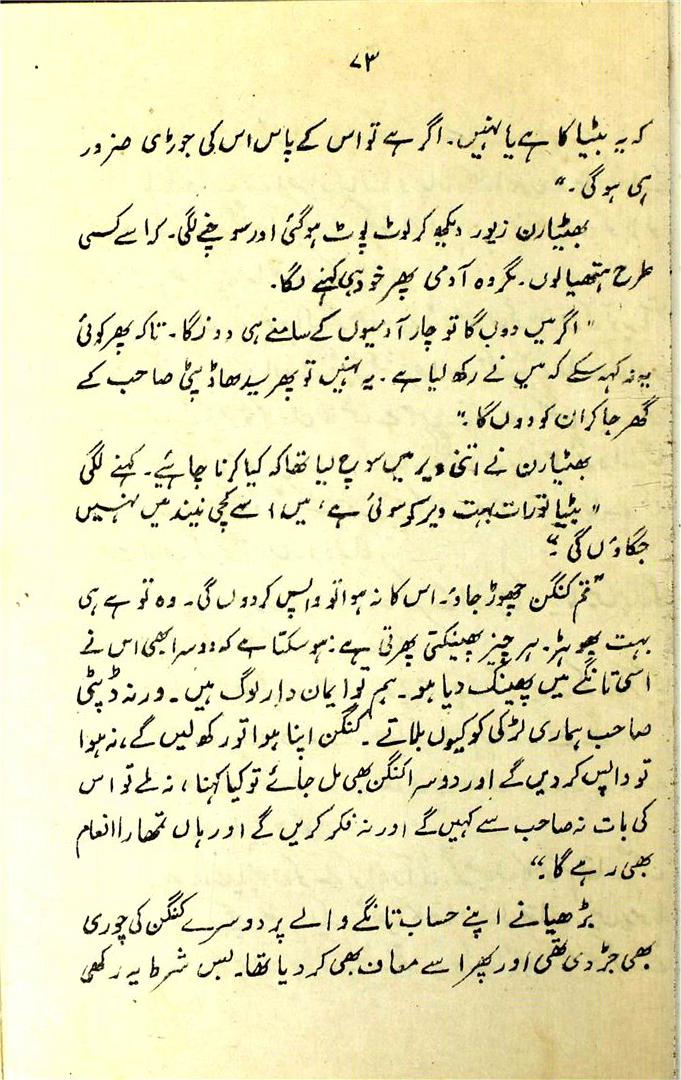 ۷۳
کہ یہ بٹیا کا ہے یا نہیں۔ اگر ہے تو اس کے پاس اس کی جوڑی ضرور
ہی ہوگی۔"
بھٹیارن زیور دیکھ کر لوٹ پوٹ ہوگئی اور سوچنے لگی۔ کہ اسے کسی
طرح ہتھیالوں۔ مگر وہ آدمی پھر خود ہی کہنے لگا۔
"اگر میں دوں گا تو چار آدمیوں کے سامنے ہی دوں گا۔ تاکہ پھر کوئی
یہ نہ کہہ سکے کہ میں نے رکھ لیا ہے۔ یہ نہیں تو پھر سیدھا ڈپٹی صاحب کے
گھر جا کر ان کو دوں گا۔"
بھٹیارن نے اتنی دیر میں سوچ لیا تھا کہ کیا کرنا چاہئے۔ کہنے لگی
"بٹیا تو رات بہت دیر کو سوئی ہے، میں اسے کچی نیند میں نہیں
جگاؤں گی۔"
"تم کنگن چھوڑ جاؤ۔ اس کا نہ ہوا تو واپس کردوں گی۔ وہ تو ہے ہی
بہت پھوہڑ۔ ہر چیز پھینکتی پھرتی ہے۔ ہو سکتا ہے کہ دوسرا بھی اس نے
اسی تانگے میں پھینک دیا ہو۔ ہم تو ایمان دار لوگ ہیں۔ ورنہ ڈپٹی
صاحب ہماری لڑکی کو کیوں بلاتے۔ کنگن اپنا ہوا تو رکھ لیں گے، نہ ہوا
تو واپس کردیں گے اور دوسرا کنگن بھی مل جائے تو کیا کہنا، نہ ملے تو اس
کی بات نہ صاحب سے کہیں گے اور نہ فکر کریں گے اور ہاں تمھارا انعام
بھی رہے گا۔"
بڑھیا نے اپنے حساب تانگے والے پر دوسرے کنگن کی چوری
بھی جڑ دی تھی اور پھر اسے معاف بھی کر دیا تھا۔ بس شرط یہ رکھی